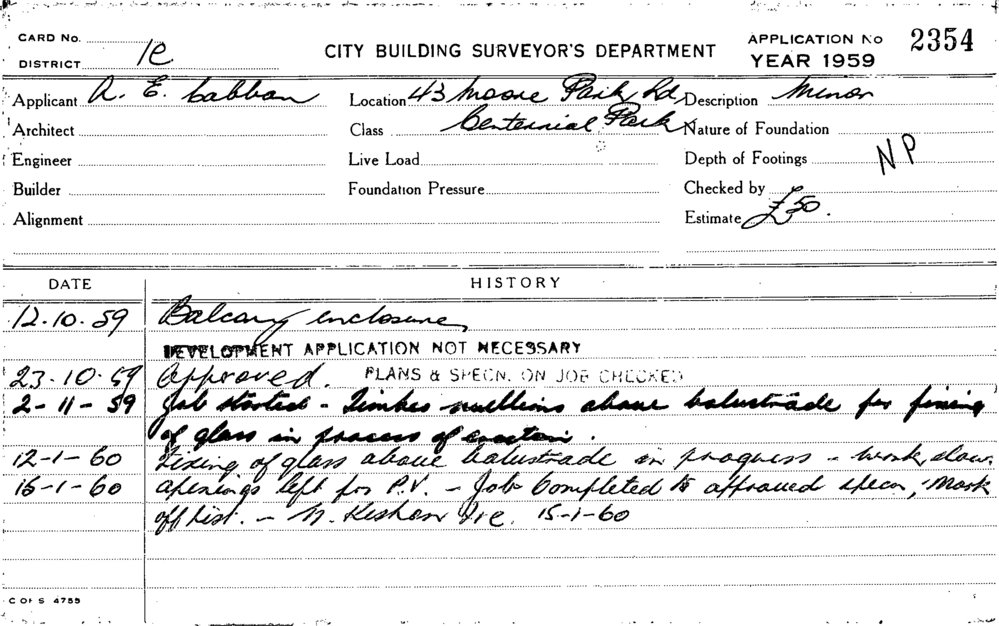 CARD No.
DISTRICT 1e
CITY BUILDING SURVEYOR'S DEPARTMENT
APPLICATION No 2354
YEAR 1959
Applicant A. E. Cabban Location 43 Moore Park Rd, Description Minor
Architect Class Centennial Park Nature of Foundation
Engineer Live Load Depth of Footings NP
Builder Foundation Pressure Checked by
Alignment Estimate £50.
DATE HISTORY
12.10.59 Balcony enclosure,
DEVELOPMENT APPLICATION NOT NECESSARY
23.10.59 Approved. PLANS & SPECN. ON JOB CHECKED
2-11-59 Job started - Timber mullions above balustrade for fixing
of glass in process of erection.
12-1-60 Fixing of glass above balustrade in progress - work slow.
15-1-60 Openings left for P.V. - Job Completed to approved specn, Mark
off list. - N. 15-1-60
C OF S 4759